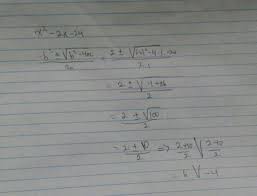 x² - 2x - 24
b ± √b² - 4ac / 2a = 2 ± √(-2)² - 4·1·-24 / 2·1
= 2 ± √4 + 96 / 2
= 2 ± √100 / 2
= 2 ± 10 / 2 ⇒ 2+10 / 2 √ 2-10 / 2
= 6 √ -4